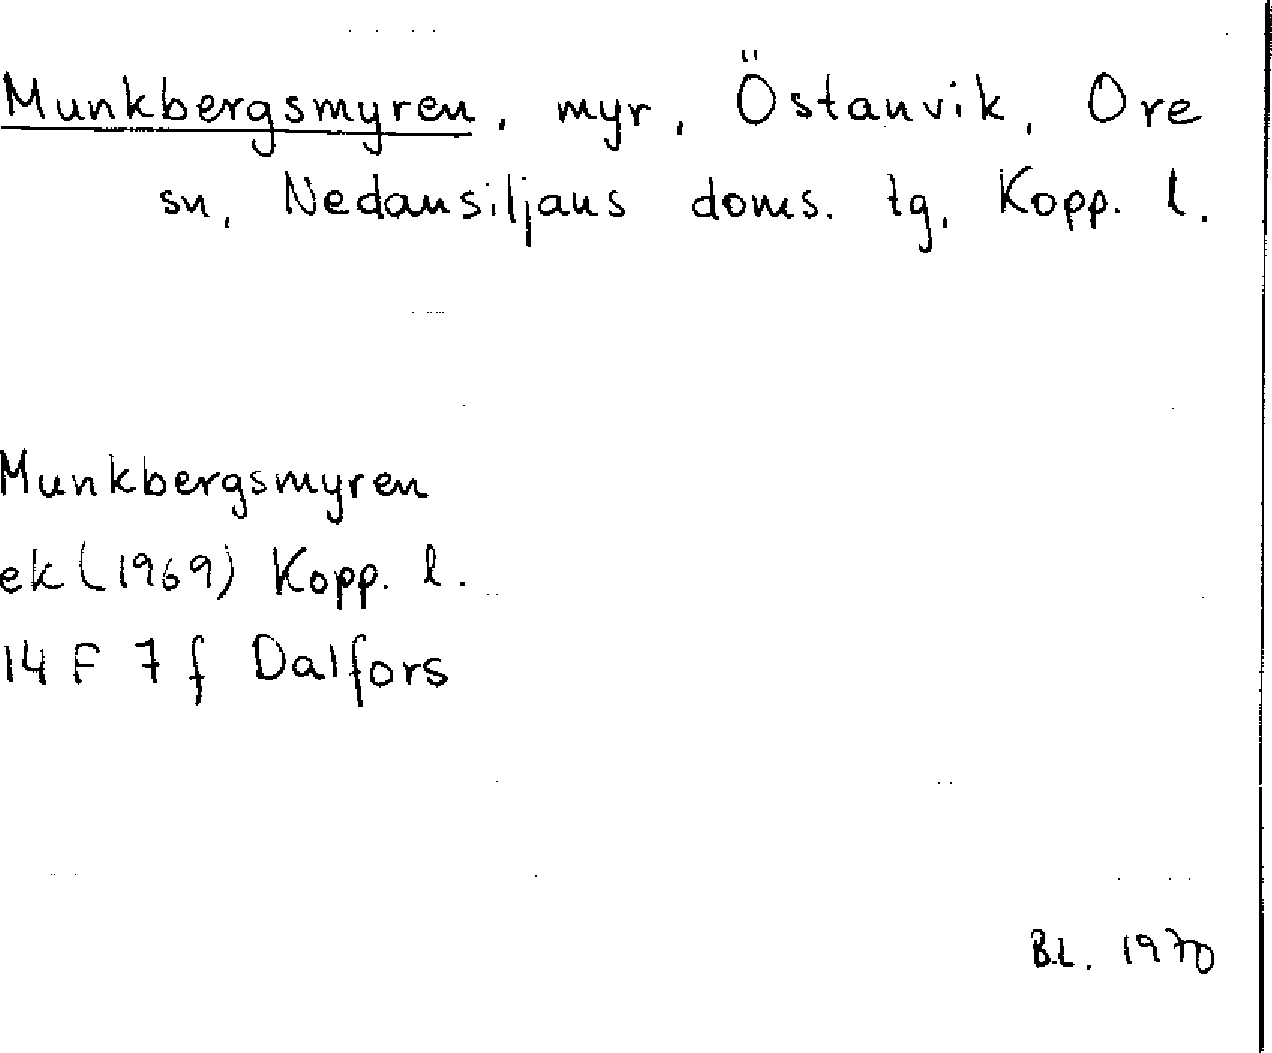 Munkbergsmyren, myr, Östanvik, Ore
sn, Nedansiljans doms. tg, Kopp. l.
Munkbergsmyren
ek (1969) Kopp. l.
14 F 7 f Dalfors
B.L. 1970